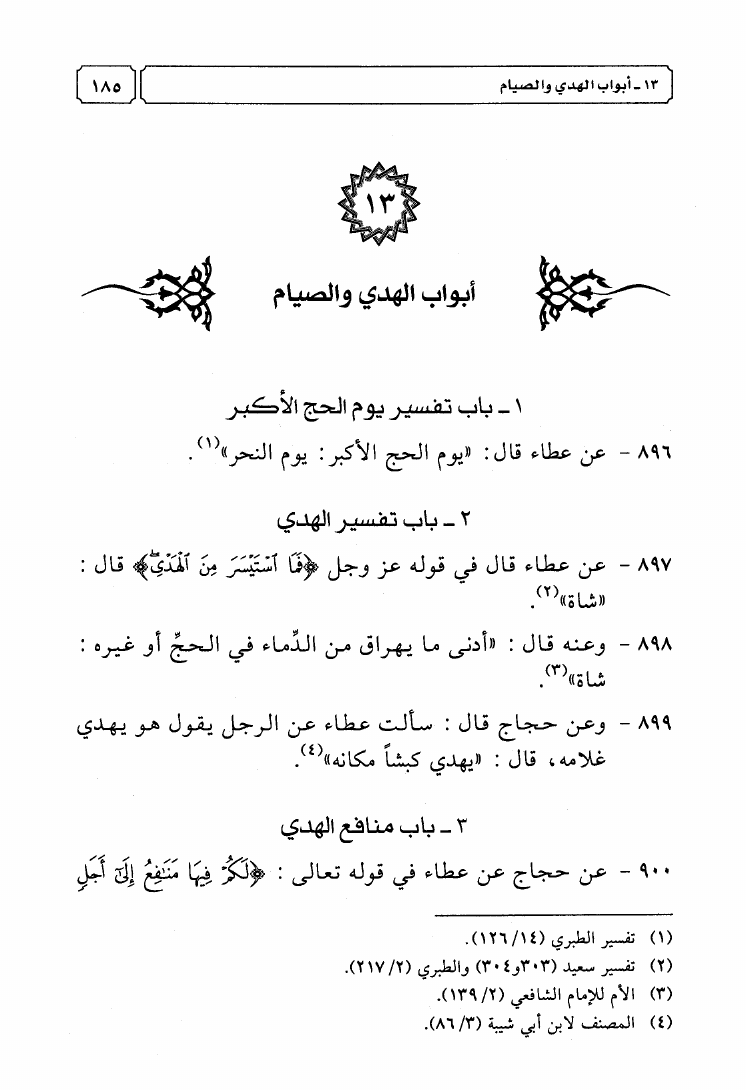 ١٣ ـ أبواب الهدي والصيام
١٨٥
١٣
أبواب الهدي والصيام
١ ـ باب تفسير يوم الحج الأكبر
٨٩٦ - عن عطاء قال: «يوم الحج الأكبر: يوم النحر»(١).
٢ ـ باب تفسير الهدي
٨٩٧ - عن عطاء قال في قوله عز وجل ﴿فَمَا ٱسْتَيْسَرَ مِنَ ٱلْهَدْيِۖ﴾ قال :
«شاة»(٢).
٨٩٨ - وعنه قال : «أدنى ما يهراق من الدِّماء في الحجِّ أو غيره :
شاة»(٣).
٨٩٩ - وعن حجاج قال : سألت عطاء عن الرجل يقول هو يهدي
غلامه، قال : «يهدي كبشاً مكانه»(٤).
٣ ـ باب منافع الهدي
٩٠٠ - عن حجاج عن عطاء في قوله تعالى : ﴿لَكُمْ فِيهَا مَنَٰفِعُ إِلَىٰٓ أَجَلٍ
(١) تفسير الطبري (١٤/ ١٢٦).
(٢) تفسير سعيد (٣٠٣و٣٠٤) والطبري (٢/ ٢١٧).
(٣) الأم للإمام الشافعي (٢/ ١٣٩).
(٤) المصنف لابن أبي شيبة (٣/ ٨٦).